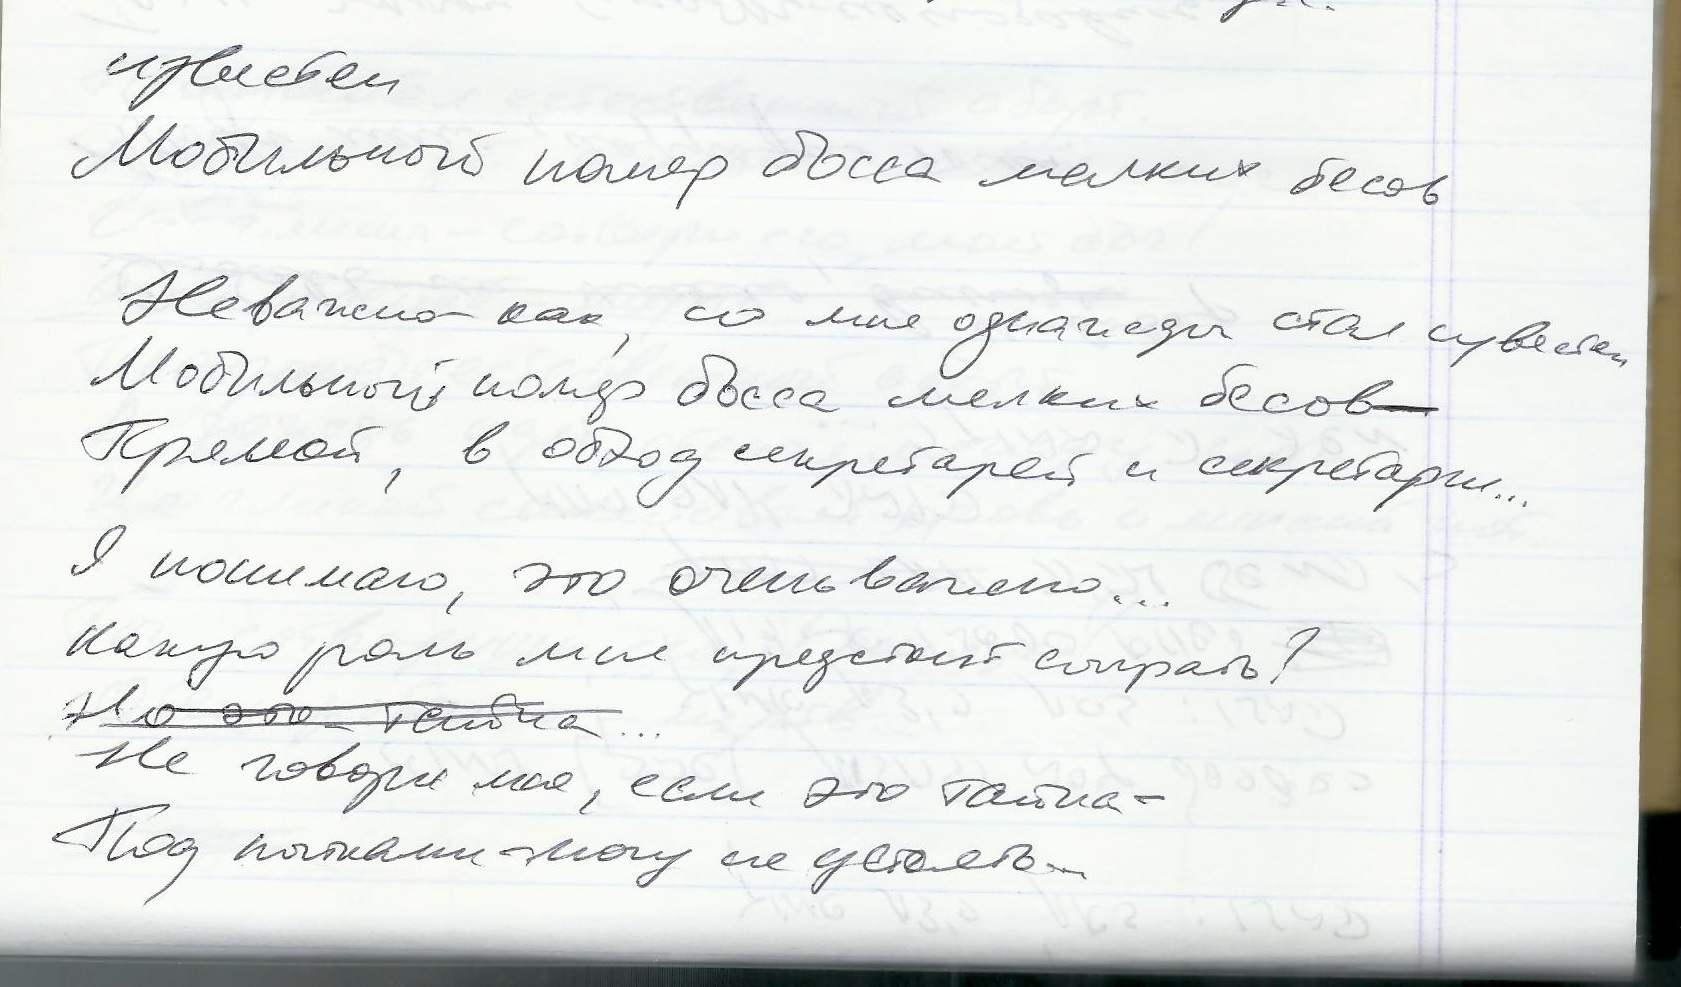 известен
Мобильный номер босса мелких бесов
Неважно как, но мне однажды стал известен
Мобильный номер босса мелких бесов —
Прямой, в обход секретарей и секретарш...
Я понимаю, это очень важно...
Какую роль мне предстоит сыграть?
Но это тайна...
Не говори мне, если это тайна –
Под пытками – могу не устоять...